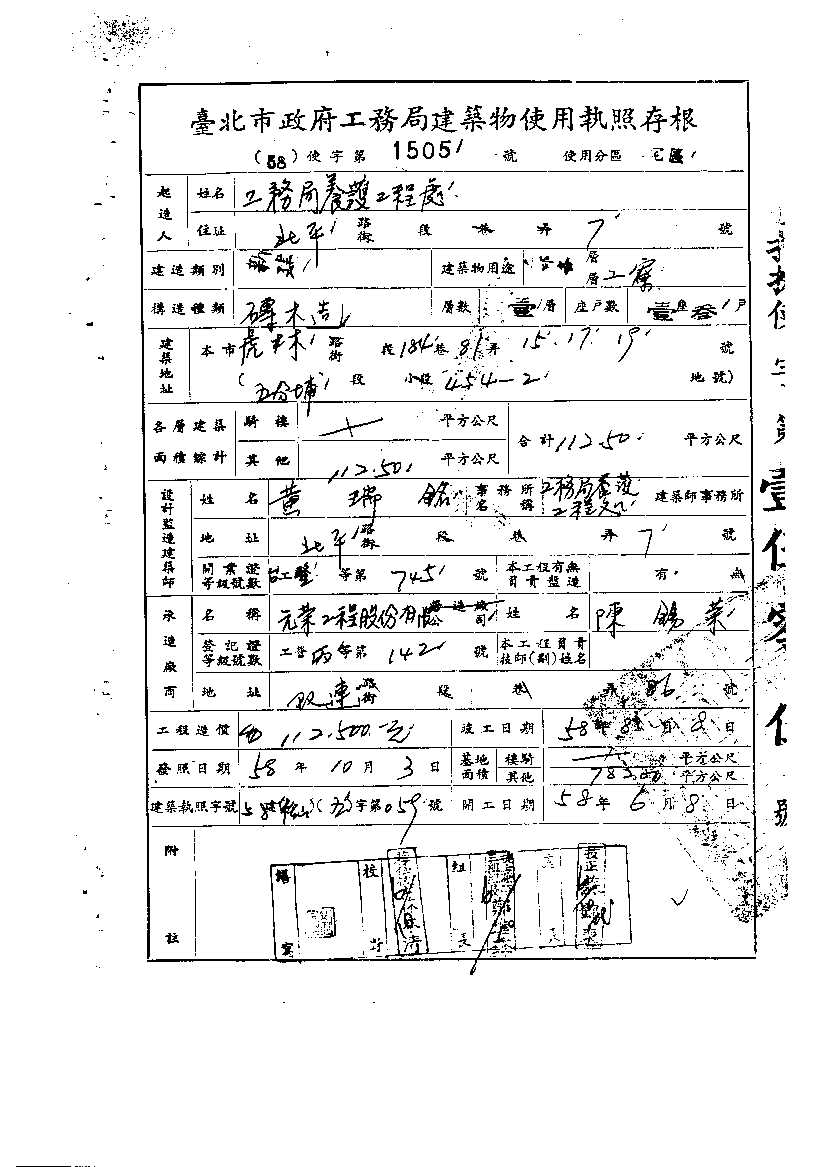 臺北市政府工務局建築物使用執照存根
(58)使字第 1505 號 使用分區
起造人 姓名 工務局養護工程處
住址 北平 路街 段 巷 弄 7 號
建造類別 建築物用途 層層 工寮
構造種類 磚木造 層數 壹層 座戶數 壹座叁戶
建築地址 本市虎林 路街 段 184 巷 81 弄 15 17 19 號
(五分埔 段 小段 454-2 地號)
各層建築面積綜計 騎樓 平方公尺 合計 112.50 平方公尺
其他 112.50 平方公尺
設計監造建築師 姓名 黃瑞銘 事務所名稱 工務局養護工程處 建築師事務所
地址 北平 路街 段 巷 弄 7 號
開業證等級號數 等第 745 號 本工程有無負責監造 有 無
承造廠商 名稱 元榮工程股份有限公司 姓名 陳錫榮
登記證等級號數 工營丙等第 142 號 本工程負責技師(副)姓名
地址 双連 路街 段 巷 弄 86 號
工程造價 112.500.元 竣工日期 58年8月8日
發照日期 58年10月3日 基地面積 樓騎 平方公尺
其他 平方公尺
建築執照字號 字第059號 開工日期 58年6月8日
附註
繕寫 校對 組長